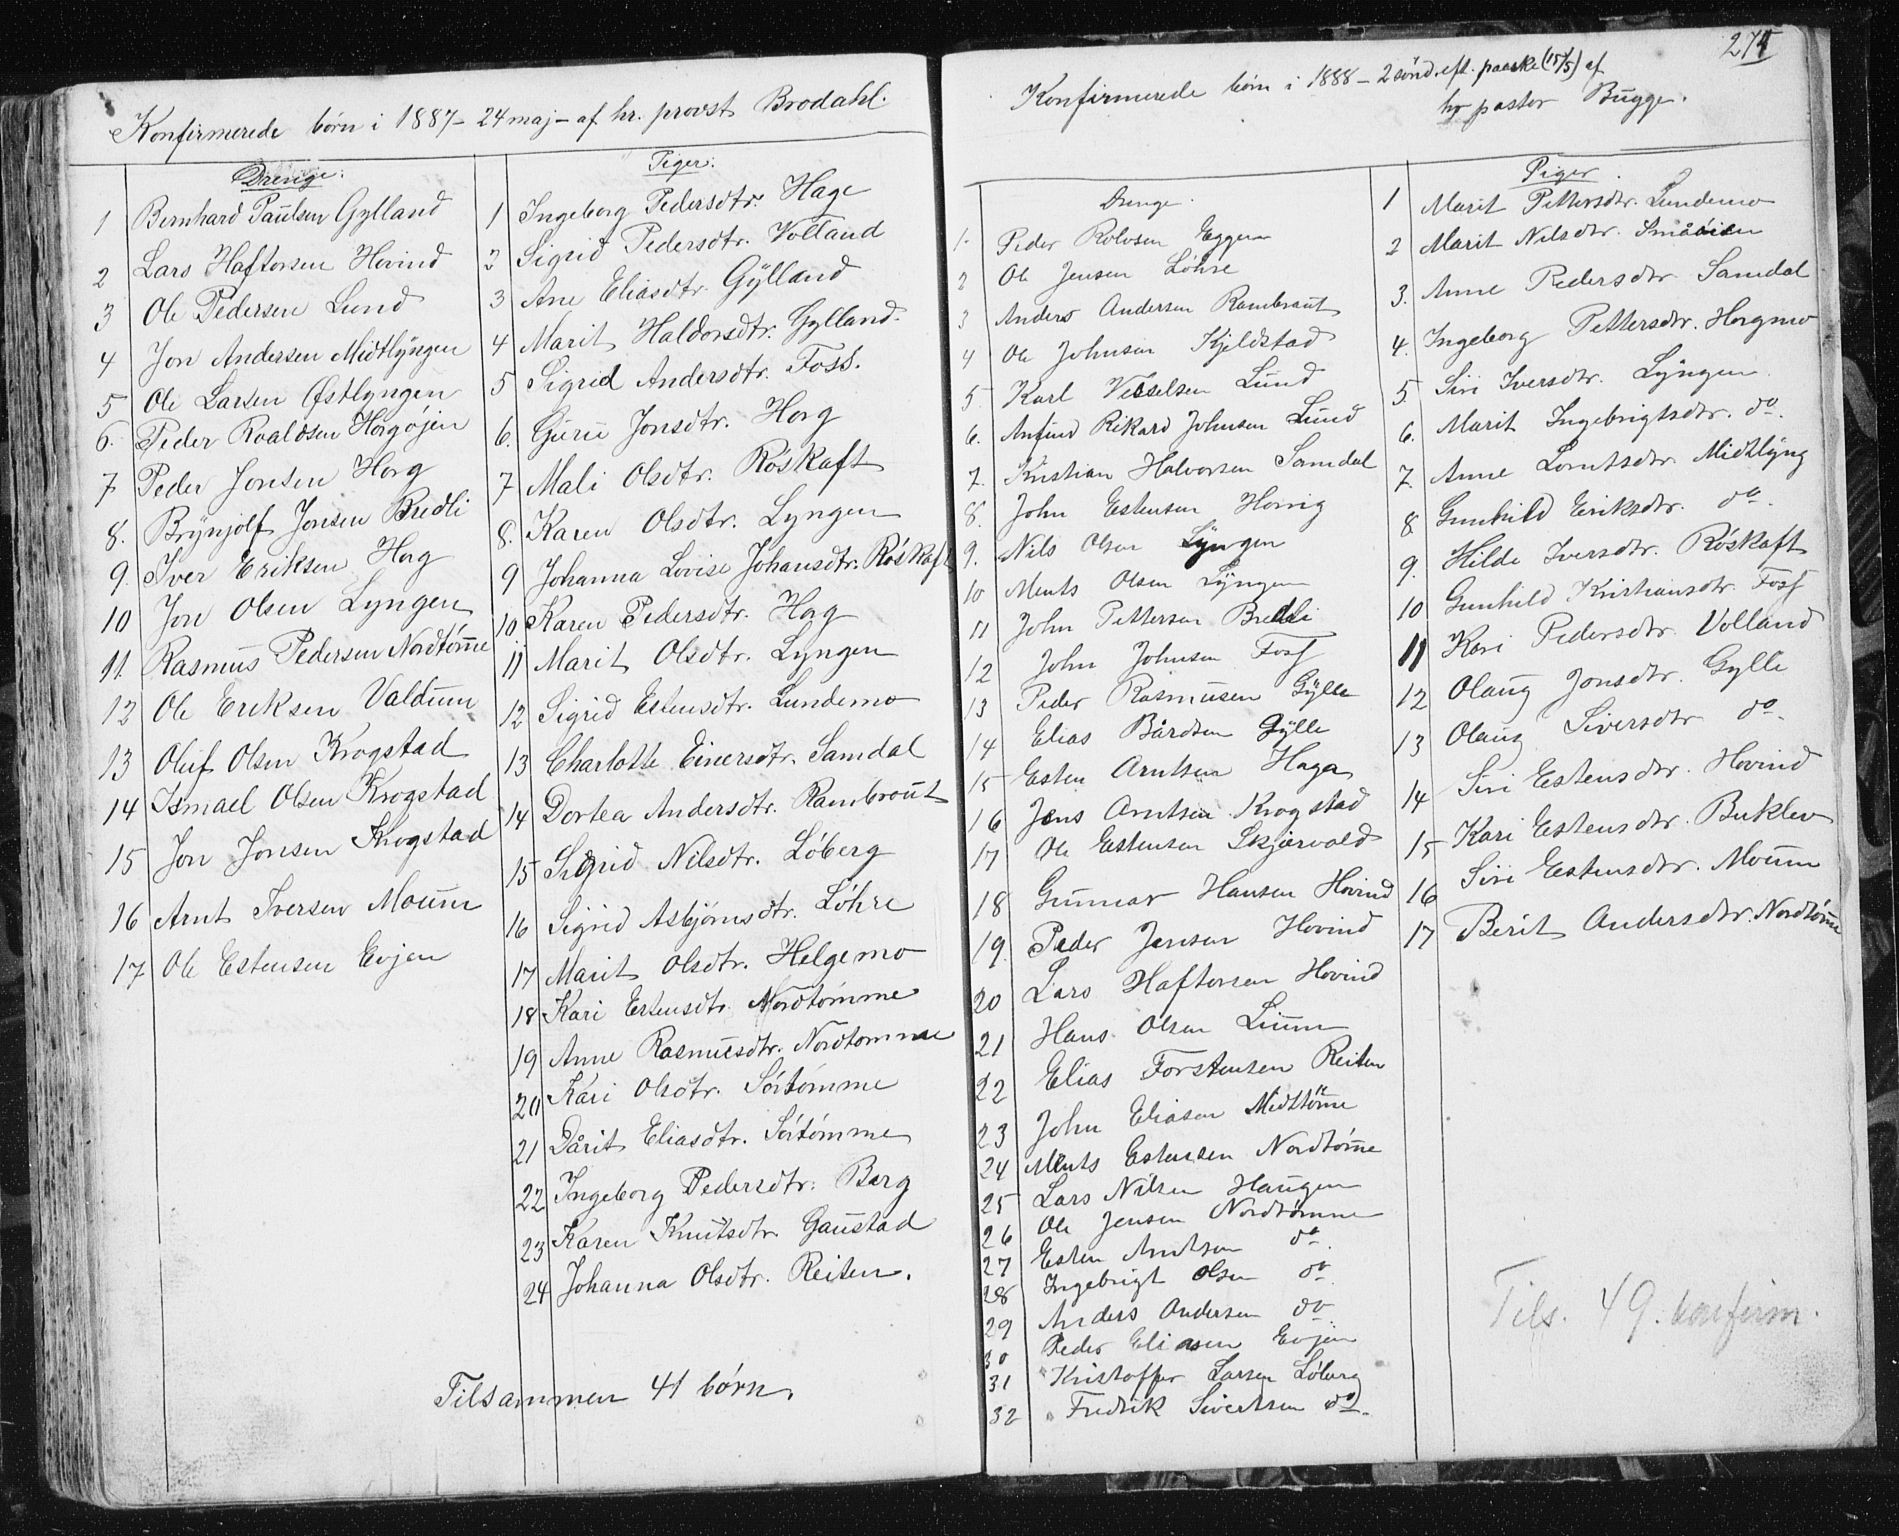 Konfirmerede børn i 1887 - 24 maj - af hr. provst Brodahl.
Drenge:
1 Bernhard Paulsen Gylland
2 Lars Haftorsen Hovind
3 Ole Pedersen Lund
4 Jon Andersen Midtlyngen
5 Ole Larsen Østlyngen
6. Peder Roaldsen Horgøjen
7 Peder Jonsen Horg
8. Brynjolf Jonsen Bredli
9. Iver Eriksen Horg
10 Jon Olsen Lyngen
11. Rasmus Pedersen Nordtøm̄e
12 Ole Eriksen Valdum
13 Oluf Olsen Krogstad
14 Ismael Olsen Krogstad
15 Jon Jonsen Krogstad
16 Arnt Iversen Moum
17 Ole Estensen Evjen
Piger:
1 Ingeborg Pedersdtr. Hage
2 Sigrid Pedersdtr. Volland
3 Ane Eliasdtr. Gylland
4 Marit Haldorsdtr. Gylland.
5 Sigrid Andersdtr. Foss.
6. Guru Jonsdtr. Horg
7 Mali Olsdtr. Røskaft
8. Karen Olsdtr. Lyngen
9 Johanna Lovise Johansdtr. Røskaft
10 Karen Pedersdtr. Horg
11 Marit Olsdtr. Lyngen
12 Sigrid Estensdtr. Lundemo
13 Charlotte Einersdtr. Samdal
14 Dortea Andersdtr. Rambraut
15 Sigrid Nilsdtr. Løberg
16 Sigrid Asbjørnsdtr. Løhre
17 Marit Olsdtr. Helgemo
18 Kari Estensdtr. Nordtømme
19 Anne Rasmusdtr. Nordtomme
20 Kari Olsdtr. Sørtømme
21 Dårit Eliasdtr. Sørtømme
22 Ingeborg Pedersdtr. Berg
23 Karen Knutsdtr. Gaustad
24 Johanna Olsdtr. Reiten.
Tilsammen 41 børn.
274
Konfirmerede børn i 1888 - 2 sønd. eft. paaske (15/5) af
hr pastor Bugge.
Drenge.
1. Peder Rolvsen Eggen
2 Ole Jensen Løhre
3 Anders Andersen Rambraut
4 Ole Johnsen Kjeldstad
5. Karl Vesselsen Lund
6. Anfind Rikard Johnsen Lund
7. Kristian Halvorsen Samdal
8. John Estensen Horrig
9. Nils Olsen Lyngen
10 Ments Olsen Lyngen
11 John Pettersen Bredli
12 John Johnsen Foss
13 Peder Rasmusen Gylle
14 Elias Bårdsen Gylle
15 Esten Arntsen Haga
16 Jens Arntsen Krogstad
17 Ole Estensen Skjærvold
18 Gunnar Hansen Hovind
19. Peder Jensen Hovind
20 Lars Haftorsen Hovind
21 Hans Olsen Lium
22 Elias Forstensen Reiten
23 John Eliasen Midttøm̄e
24 Ments Estensen Nordtøm̄e
25 Lars Nilsen Haugen
26 Ole Jensen Nordtømme
27 Esten Arntsen do.
28 Ingebrigt Olsen do
29 Anders Andersen do
30 Peder Eliasen Evjen
31 Kristoffer Larsen Løberg
32 Fredrik Sivertsen do.
Piger.
1 Marit Pettersdtr. Lundemo
2 Marit Nilsdtr. Småøien
3. Anne Pedersdtr. Samdal
4. Ingeborg Pettersdtr. Horgmo
5. Siri Iversdtr. Lyngen
6. Marit Ingebrigtsdtr. do.
7. Anne Lorntsdtr. Midtlyng
8 Gunhild Eriksdtr. do.
9. Hilde Iversdtr. Røskaft
10 Gunhild Kristiansdtr. Foss
11 Kari Pedersdtr. Volland
12 Olaug Jonsdtr. Gylle
13 Olaug Siversdtr do.
14 Siri Estensdtr. Hovind
15 Kari Estensdtr. Buklev
16 Siri Estensdtr. Moum
17 Berit Andersdtr Nordtøm̄e
Tils. 49. konfirm.